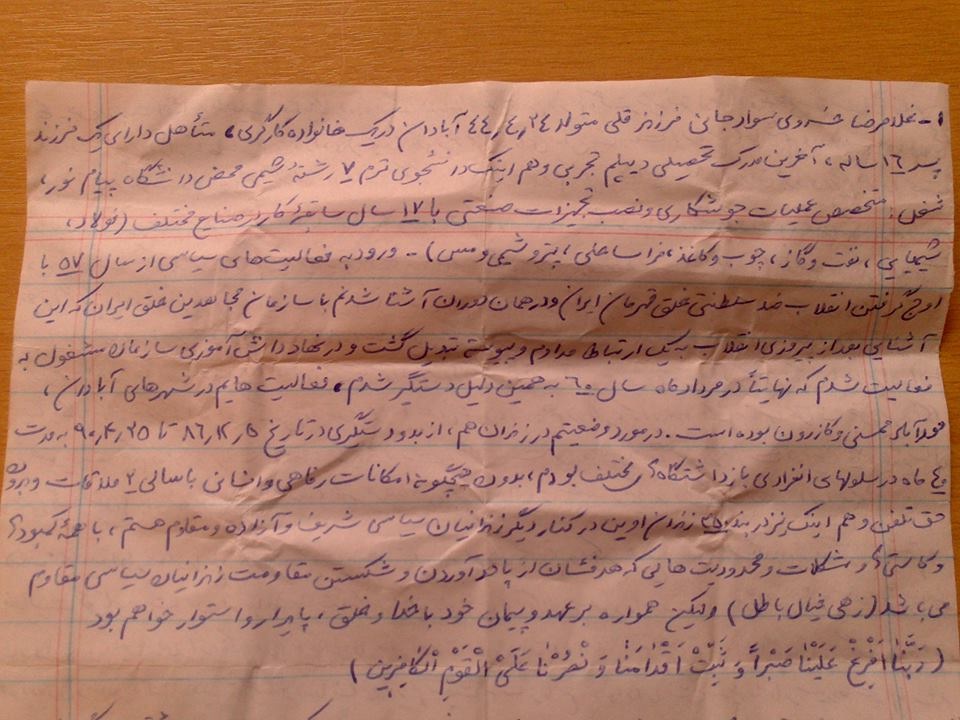 ۱- غلامرضا خسروی سوادجانی فرزند قلی متولد ۴۴٫۴٫۲۴ آبادان در یک خانواده کارگری، متأهل دارای یک فرزند
پسر ۱۶ ساله، آخرین مدرک تحصیلی دیپلم تجربی و هم اینک دانشجوی ترم ۷ رشتهٔ شیمی محض دانشگاه پیام نور،
شغل: متخصص عملیات جوشکاری و نصب تجهیزات صنعتی با ۱۷ سال سابقهٔ کار در صنایع مختلف (فولاد،
شیمیایی، نفت و گاز، چوب و کاغذ، فراساحلی، پتروشیمی و مس) - ورود به فعالیت‌های سیاسی از سال ۵۷ با
اوج گرفتن انقلاب ضد سلطنتی خلق قهرمان ایران و در همان دوران آشنا شدنم با سازمان مجاهدین خلق ایران که این
آشنایی بعد از پیروزی انقلاب به یک ارتباط مداوم و پیوسته تبدیل گشت و در نهاد دانش آموزی سازمان مشغول به
فعالیت شدم که نهایتاً در مرداد ماه سال ۶۰ به همین دلیل دستگیر شدم، فعالیت هایم در شهرهای آبادان،
نورآباد ممسنی و کازرون بوده است. در مورد وضعیتم در زندان هم، از بدو دستگیری در تاریخ ۸۶٫۱۲٫۵ تا ۹۰٫۴٫۲۵ به مدت
۴۰ ماه در سلولهای انفرادی بازداشتگاه‌های مختلف بودم، بدون هیچگونه امکانات رفاهی و انسانی با سالی ۲ ملاقات و بدون
حق تلفن و هم اینک نیز در بند ۳۵۰ زندان اوین در کنار دیگر زندانیان سیاسی شریف و آزاده و مقاوم هستم، با همهٔ کمبودها
و کاستی‌ها و مشکلات و محدودیت هایی که هدفشان از پا در آوردن و شکستن مقاومت زندانیان سیاسی مقاوم
می باشد (زهی خیال باطل) ولیکن همواره بر عهد و پیمان خود با خدا و خلق، پایدار و استوار خواهم بود
(رَبَّنا اَفْرِغْ عَلَیْنا صَبْراً وَ ثَبِّتْ اَقْدامَنا وَ نْصُرْنا عَلَیْ الْقَوْمِ الْکافِرین)